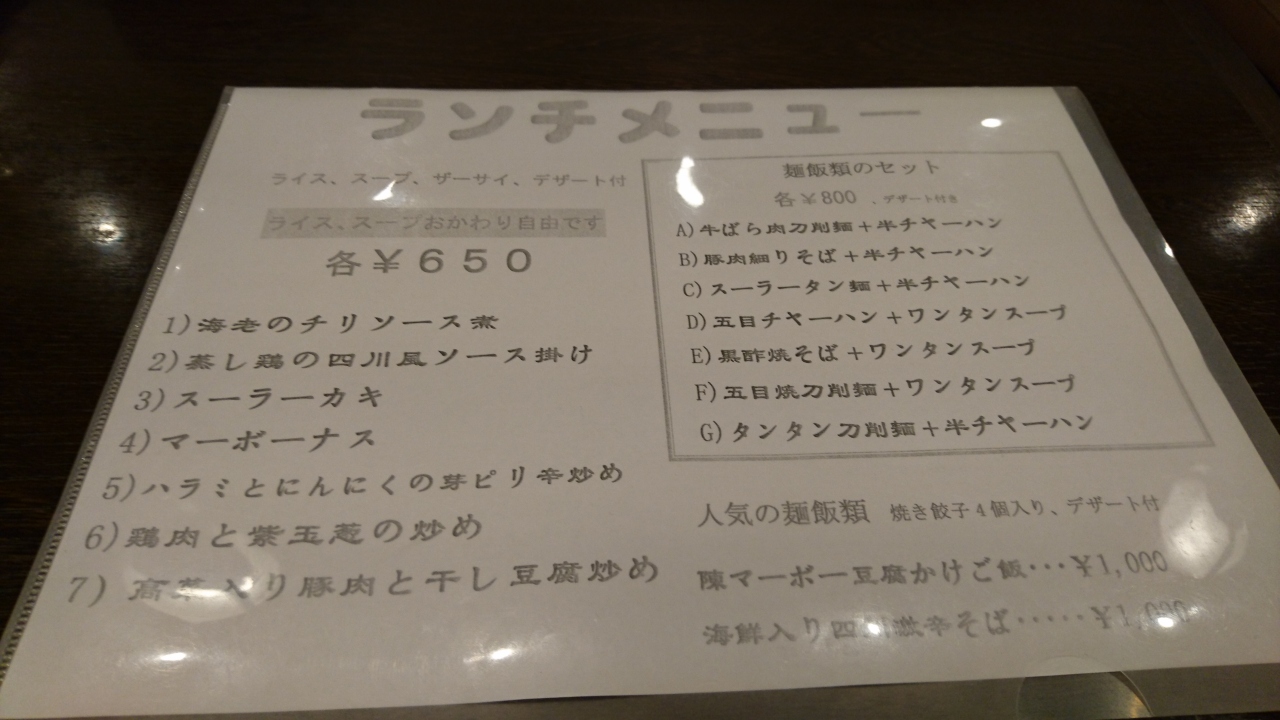 ランチメニュー
ライス、スープ、ザーサイ、デザート付
ライス、スープおかわり自由です
各￥６５０
1)海老のチリソース煮
2)蒸し鶏の四川風ソース掛け
3)スーラーカキ
4)マーボーナス
5)ハラミとにんにくの芽ピリ辛炒め
6)鶏肉と紫玉葱の炒め
7)高菜入り豚肉と干し豆腐炒め
麺飯類のセット
各￥800 、デザート付き
A)牛ばら肉刀削麺＋半チャーハン
B)豚肉細りそば＋半チャーハン
C)スーラータン麺＋半チャーハン
D)五目チャーハン＋ワンタンスープ
E)黒酢焼そば＋ワンタンスープ
F)五目焼刀削麺＋ワンタンスープ
G)タンタン刀削麺＋半チャーハン
人気の麺飯類 焼き餃子4個入り、デザート付
陳マーボー豆腐かけご飯･･･￥1,000
海鮮入り四川激辛そば･････￥1,000